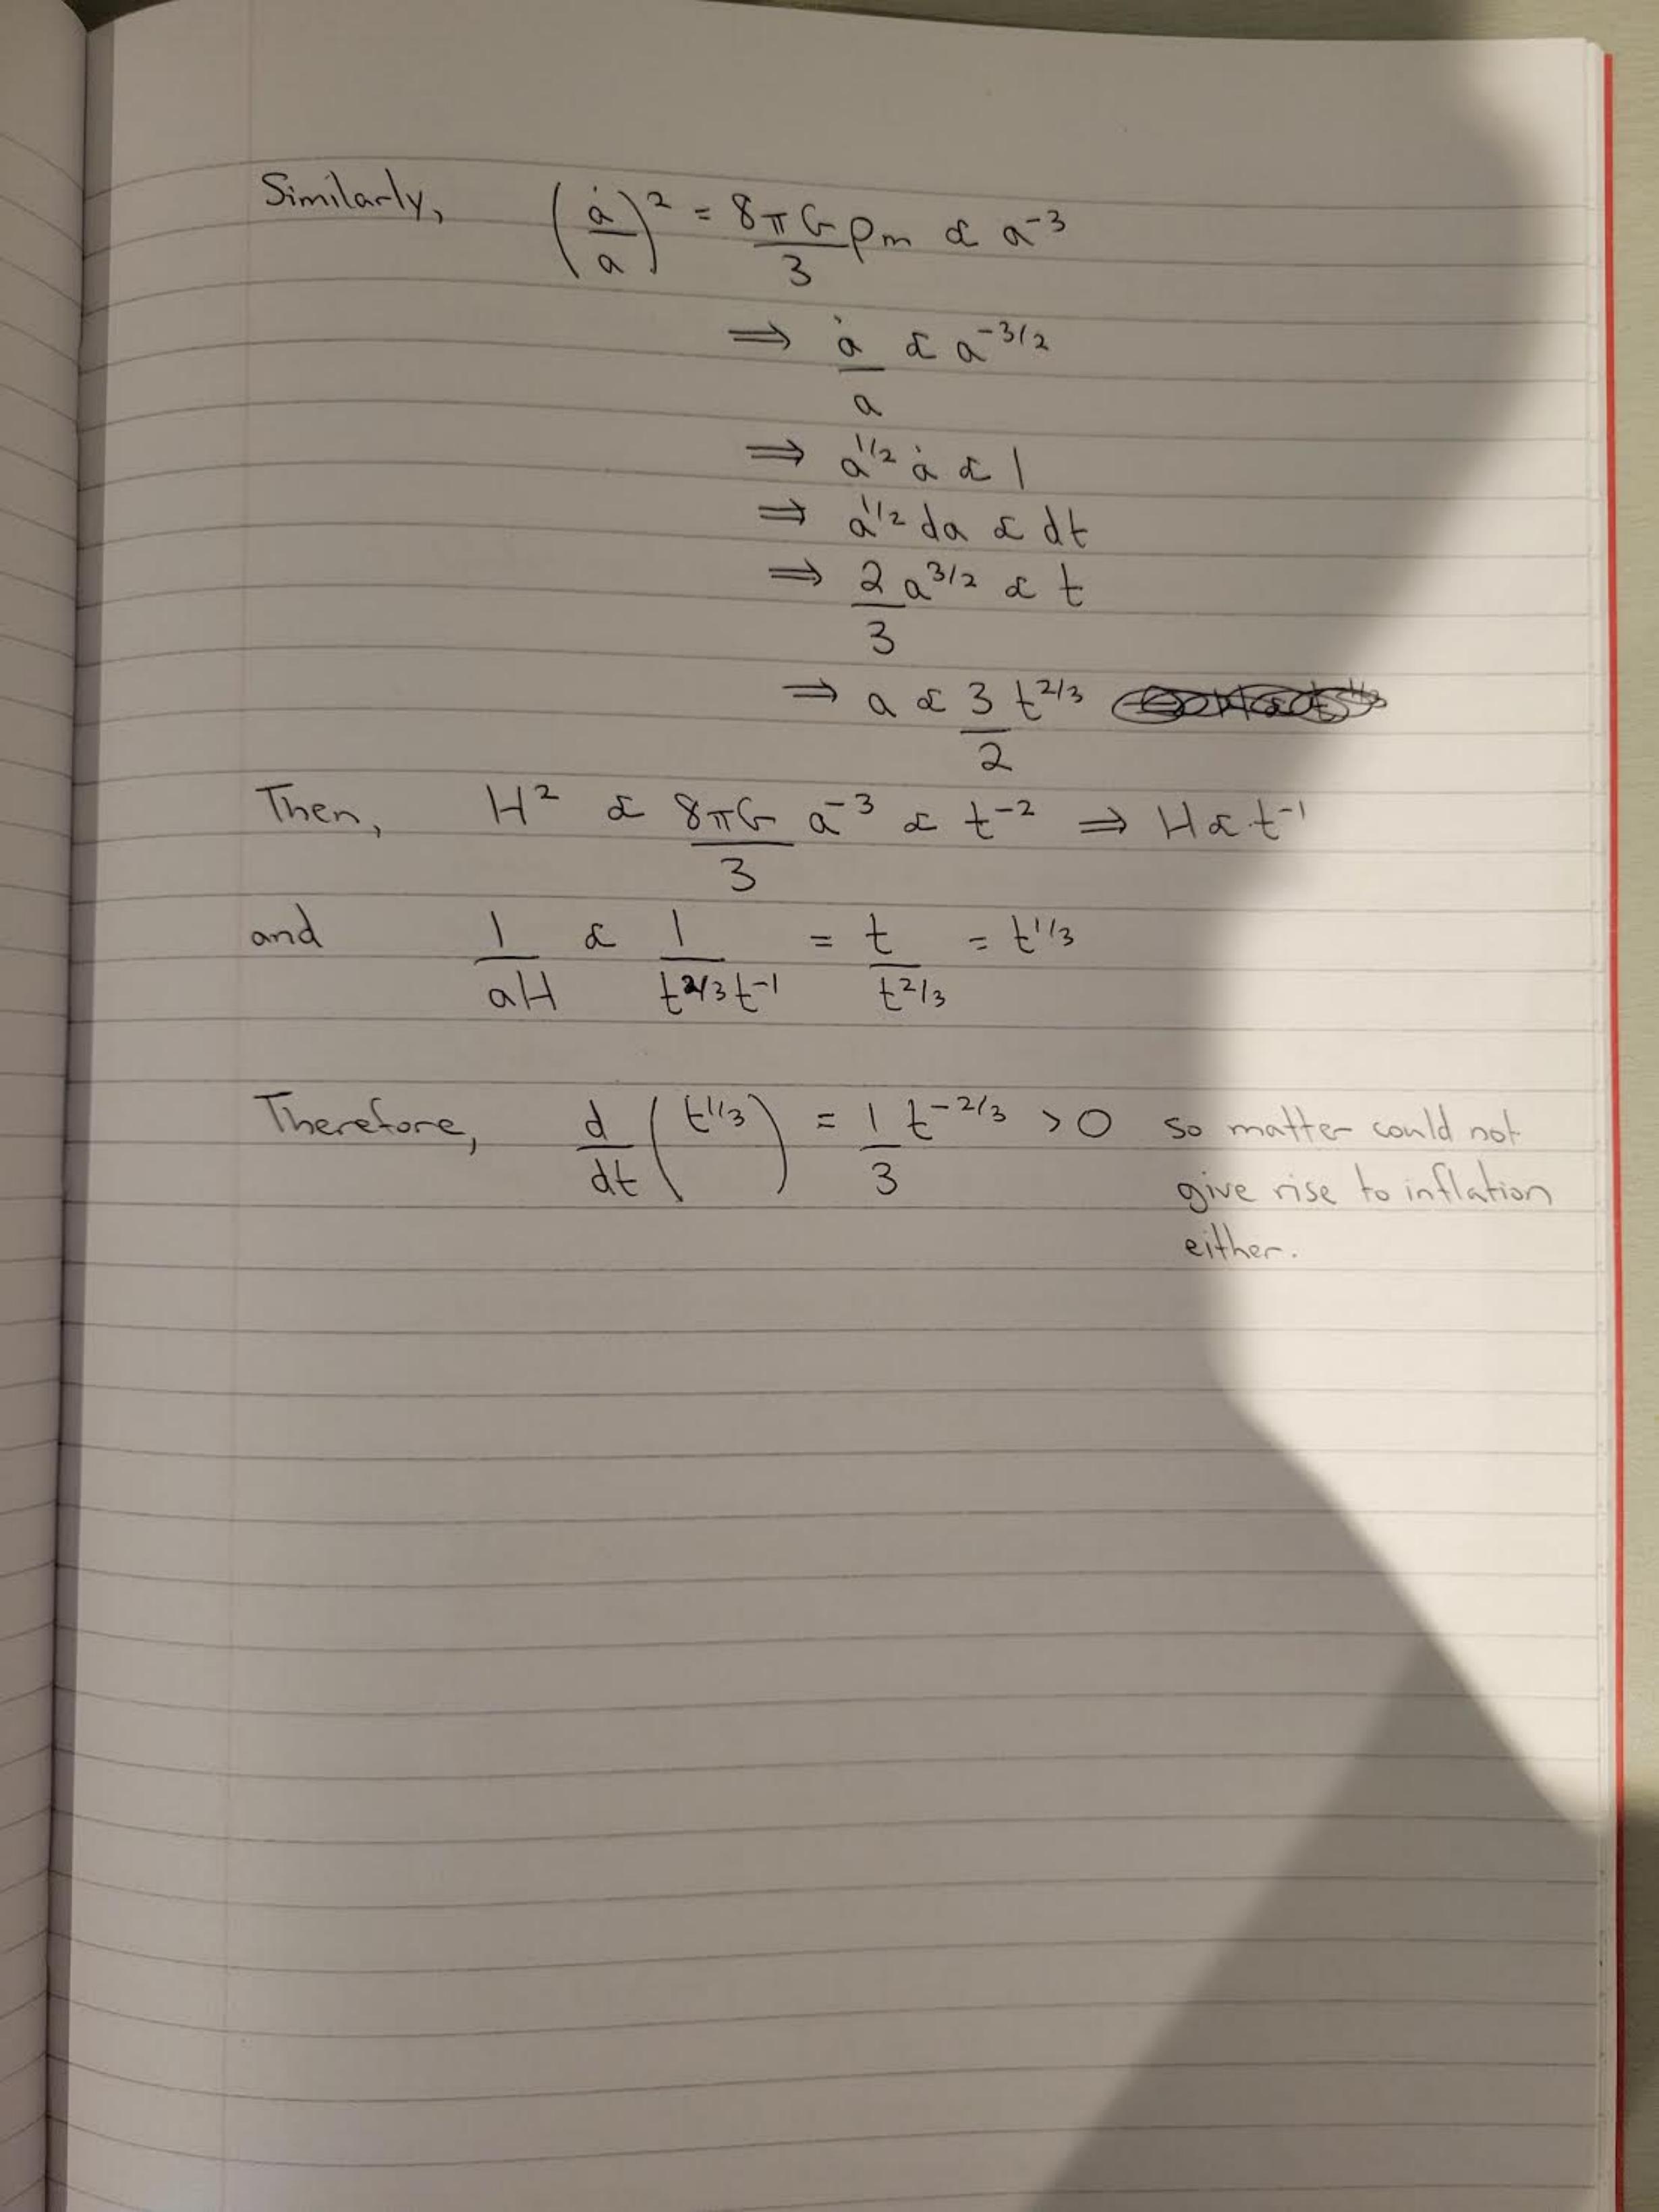 Similarly, (ȧ/a)² = 8πG/3 ρm ∝ a⁻³
⇒ ȧ/a ∝ a⁻³/²
⇒ a¹/² ȧ ∝ 1
⇒ a¹/² da ∝ dt
⇒ 2/3 a³/² ∝ t
⇒ a ∝ 3/2 t²/³
Then, H² ∝ 8πG/3 a⁻³ ∝ t⁻² ⇒ H ∝ t⁻¹
and 1/aH ∝ 1/t²/³ t⁻¹ = t/t²/³ = t¹/³
Therefore, d/dt (t¹/³) = 1/3 t⁻²/³ > 0 so matter could not
give rise to inflation
either.